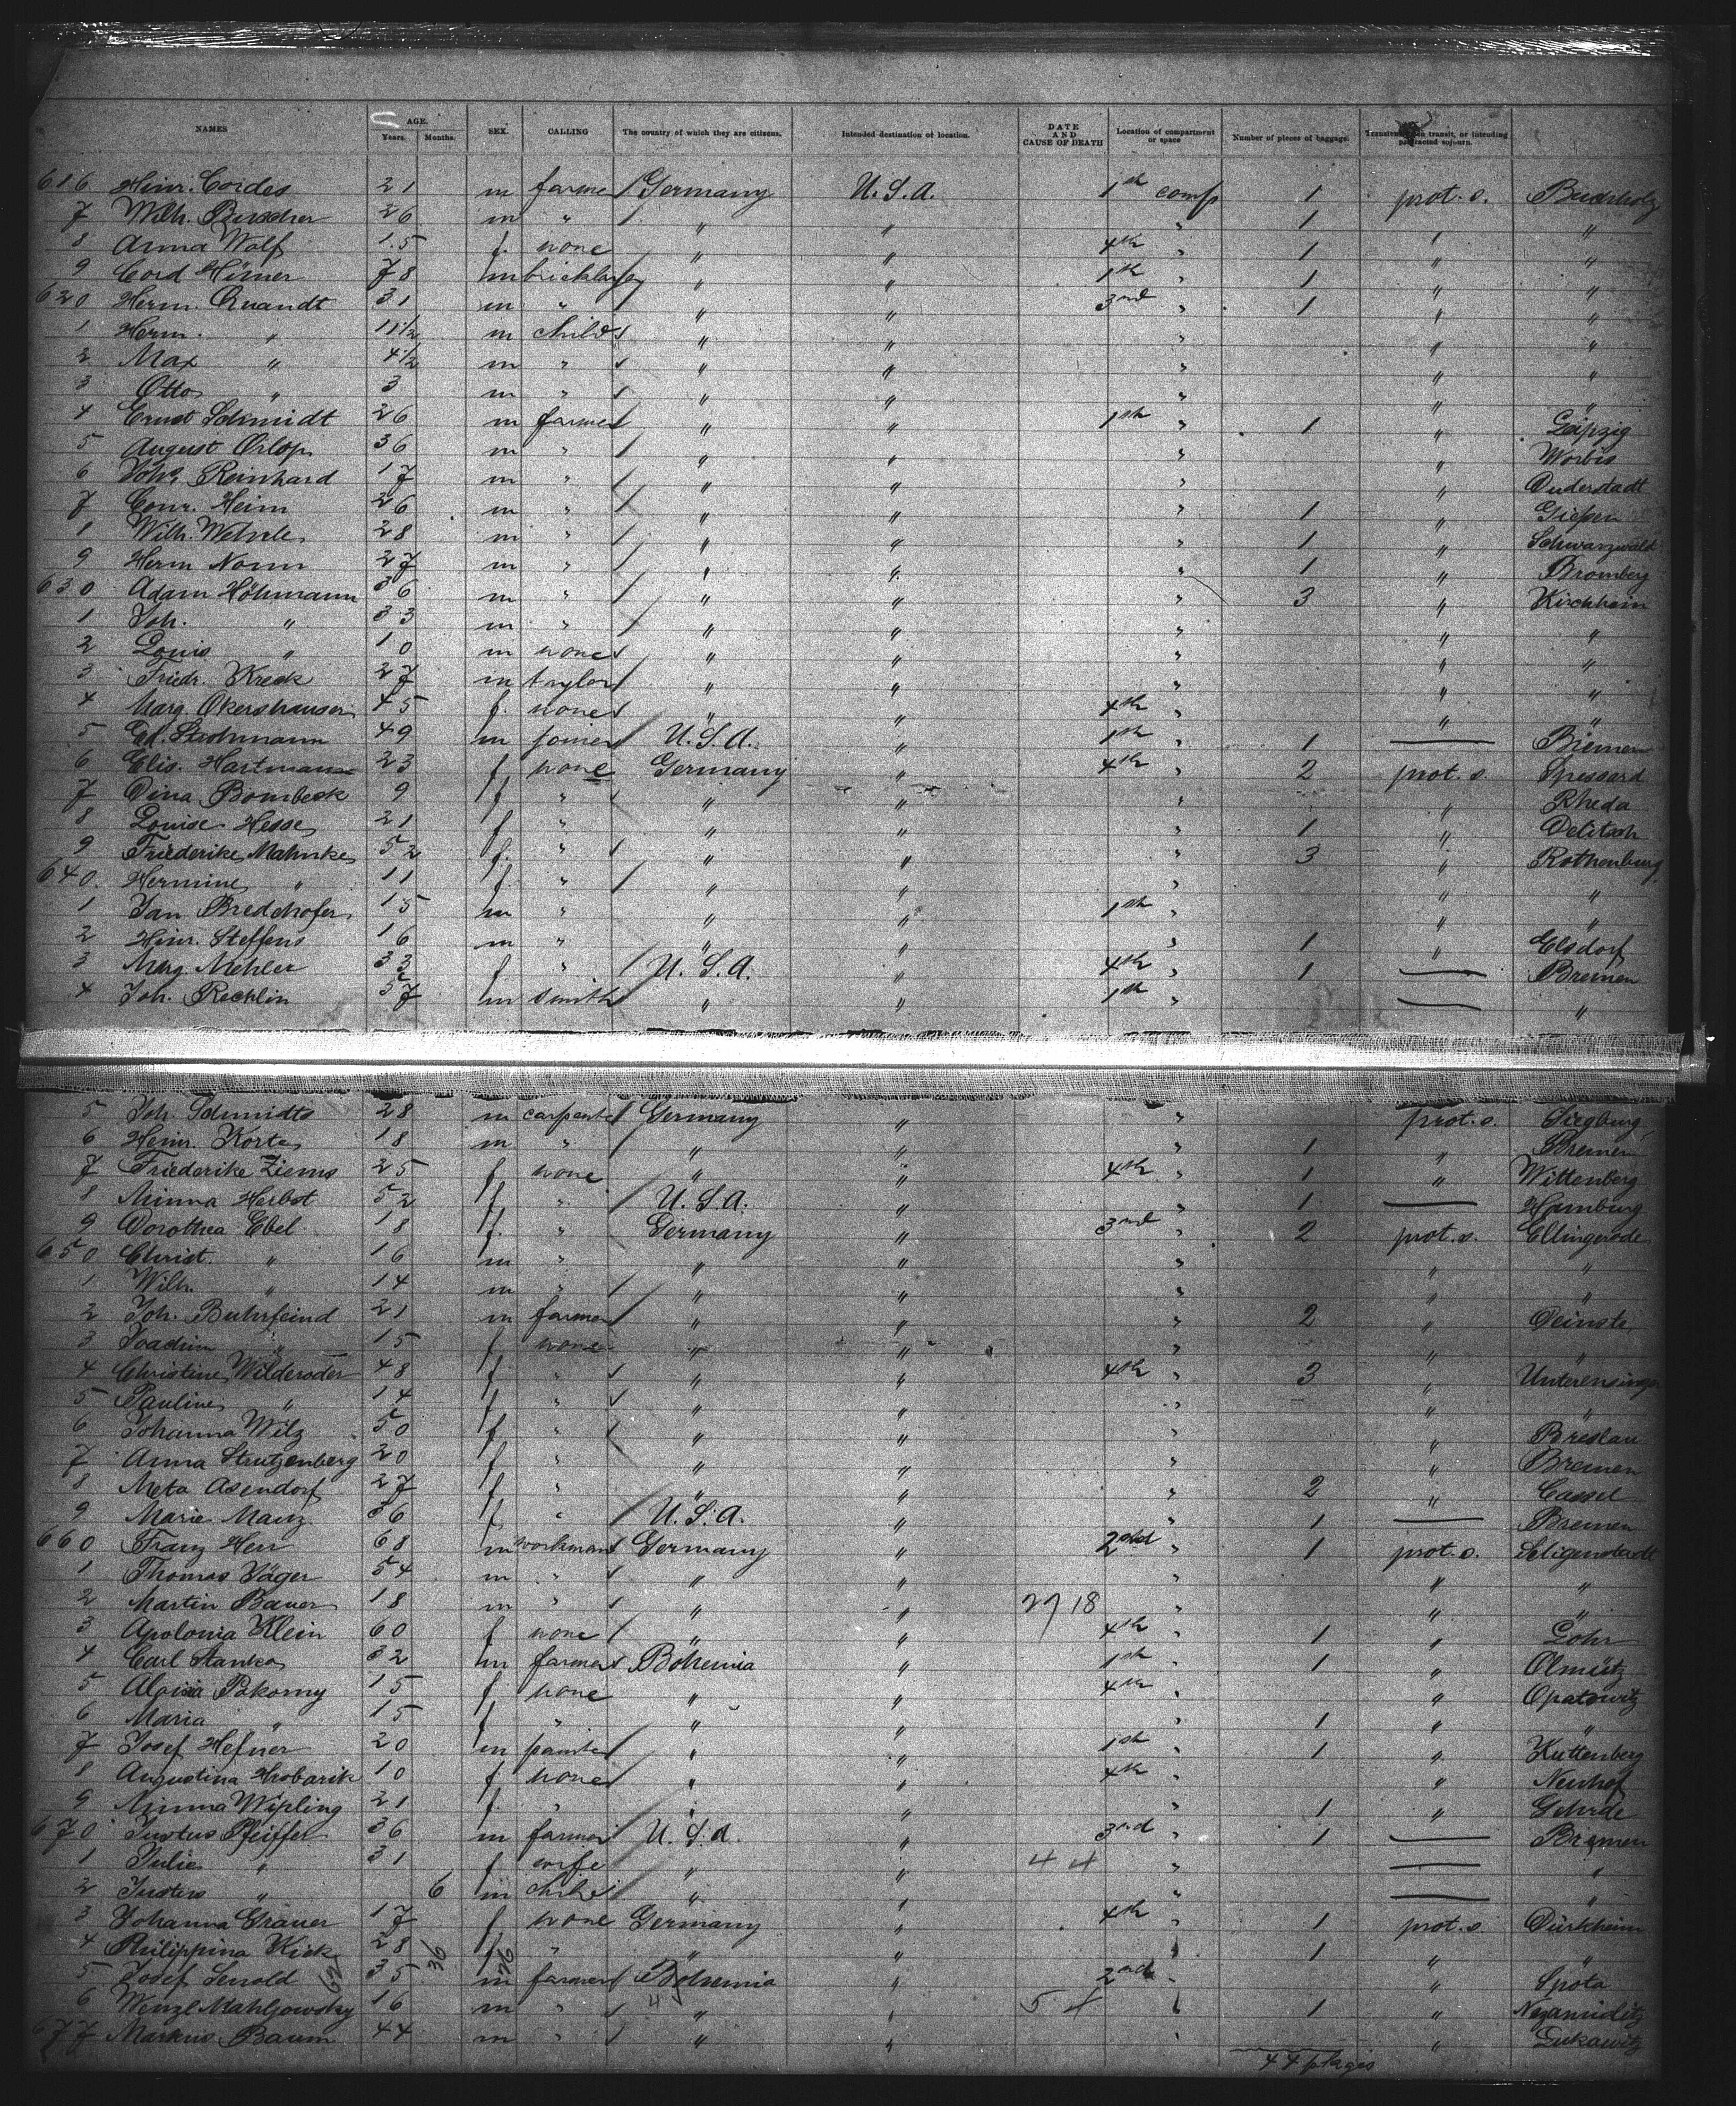 NAMES AGE. Years. Months. SEX. CALLING The country of which they are citizens. Intended destination or location. DATE AND CAUSE OF DEATH Location of compartment or space Number of pieces of baggage. in transit, or intending protracted sojourn.
616 Hinr. Cordes 21 m farmer Germany U.S.A. 1st comp 1 prot. s.
7 Wilh. 26 m " " " " 1 " "
8 Anna Wolf 15 f. none " " 4th " 1 " "
9 Cord 78 m bricklayer " " 1st " 1 " "
620 Herm. Quandt 31 m " " " 3rd " 1 " "
1 Herm. " 11½ m child " " " " "
2 Max " 4½ m " " " " " "
3 Otto " 3 m " " " " " "
4 Ernst Schmidt 26 m farmer " " 1st " 1 " Leipzig
5 August Ortop 36 m " " " " " Worbis
6 Joh. Reinhard 17 m " " " " " Duderstadt
7 Conr. Heim 26 m " " " " 1 " Gießen
8 Wilh. Wehrle 28 m " " " " 1 " Schwarzwald
9 Herm Nonn 27 m " " " " 1 " Bromberg
630 Adam Höhmann 36 m " " " " 3 " Kirchhain
1 Joh. " 33 m " " " " " "
2 Louis " 10 m none " " " " "
3 Friedr. Kreck 27 m taylor " " " " "
4 Marg. Okershausen 45 f. none " " 4th " " "
5 Ed. Strohmann 49 m joiner U.S.A. " 1st " 1 — Bremen
6 Elis. Hartmann 23 f. none Germany " 4th " 2 prot. s. Spessard
7 Dina Bombeck 9 f " " " " " Rheda
8 Louise Hesse 21 f " " " " 1 " Delitsch
9 Friederike Mahnke 52 f. " " " " 3 " Rothenburg
640 Hermine " 11 f. " " " " " "
1 Jan Bredehofer 15 m " " " 1st " " "
2 Hinr. Steffens 16 m " " " " 1 " Elsdorf
3 Marg Mehler 33 f " U.S.A. " 4th " 1 — Bremen
4 Joh. Rechlin 57 m smith " " 1st " — "
5 Joh. Schmidts 28 m carpenter Germany " " prot. s. Siegburg
6 Heinr. Korte 18 m " " " " 1 " Bremen
7 Friederike Ziems 25 f none " " 4th " 1 " Wittenberg
8 Minna Herbst 52 f " U.S.A. " " 1 — Hamburg
9 Dorothea Ebel 18 f. " Germany " 3rd " 2 prot. s. Ellingerode
650 Christ. " 16 m " " " " " "
1 Wilh. " 14 m " " " " " "
2 Joh. Buhrfeind 21 m farmer " " " 2 " Deinste
3 Joachim " 15 f none " " " " "
4 Christine Wilderoder 48 f. " " " 4th " 3 " Unterensingen
5 Pauline " 14 f " " " " " "
6 Johanna Wilz 50 f " " " " " Breslau
7 Anna Strutzenberg 20 f " " " " " Bremen
8 Meta Asendorf 27 f " " " " 2 " Cassel
9 Marie Manz 36 f " U.S.A. " " 1 — Bremen
660 Franz Herr 68 m workman Germany " 2nd " 1 prot. s. Seligenstadt
1 Thomas Jäger 54 m " " " " " "
2 Martin Bauer 18 m " " " 27 18 " " "
3 Apolonia Klein 60 f none " " 4th " 1 " Lohr
4 Carl Stanka 32 m farmer Bohemia " 1st " 1 " Olmütz
5 Aloisia Pokorny 15 f none " " 4th " " Opatowitz
6 Maria " 15 f " " " " 1 " "
7 Josef Hefner 20 m painter " " 1st " 1 " Kuttenberg
8 Augustina Hrobarik 10 f. none " " 4th " " Neuhof
9 Minna Wipling 21 f. " " " " 1 " Gehrde
670 Justus Pfeiffer 36 m farmer U.S.A. " 3rd " 1 — Bremen
1 Julie " 31 f wife " " 44 " — "
2 Justus " 6 m child " " " — "
3 Johanna Grauer 17 f none Germany " 4th " 1 prot. s. Dürkheim
4 Philippina Kick 28 36 f 26 " " " 1 " "
5 Josef 62 35 m farmer Bohemia " 2nd " " Spota
6 Wenzl 16 m " 45 " " 54 1 "
677 Markus Baum 44 m " " " " " Lukawitz
44